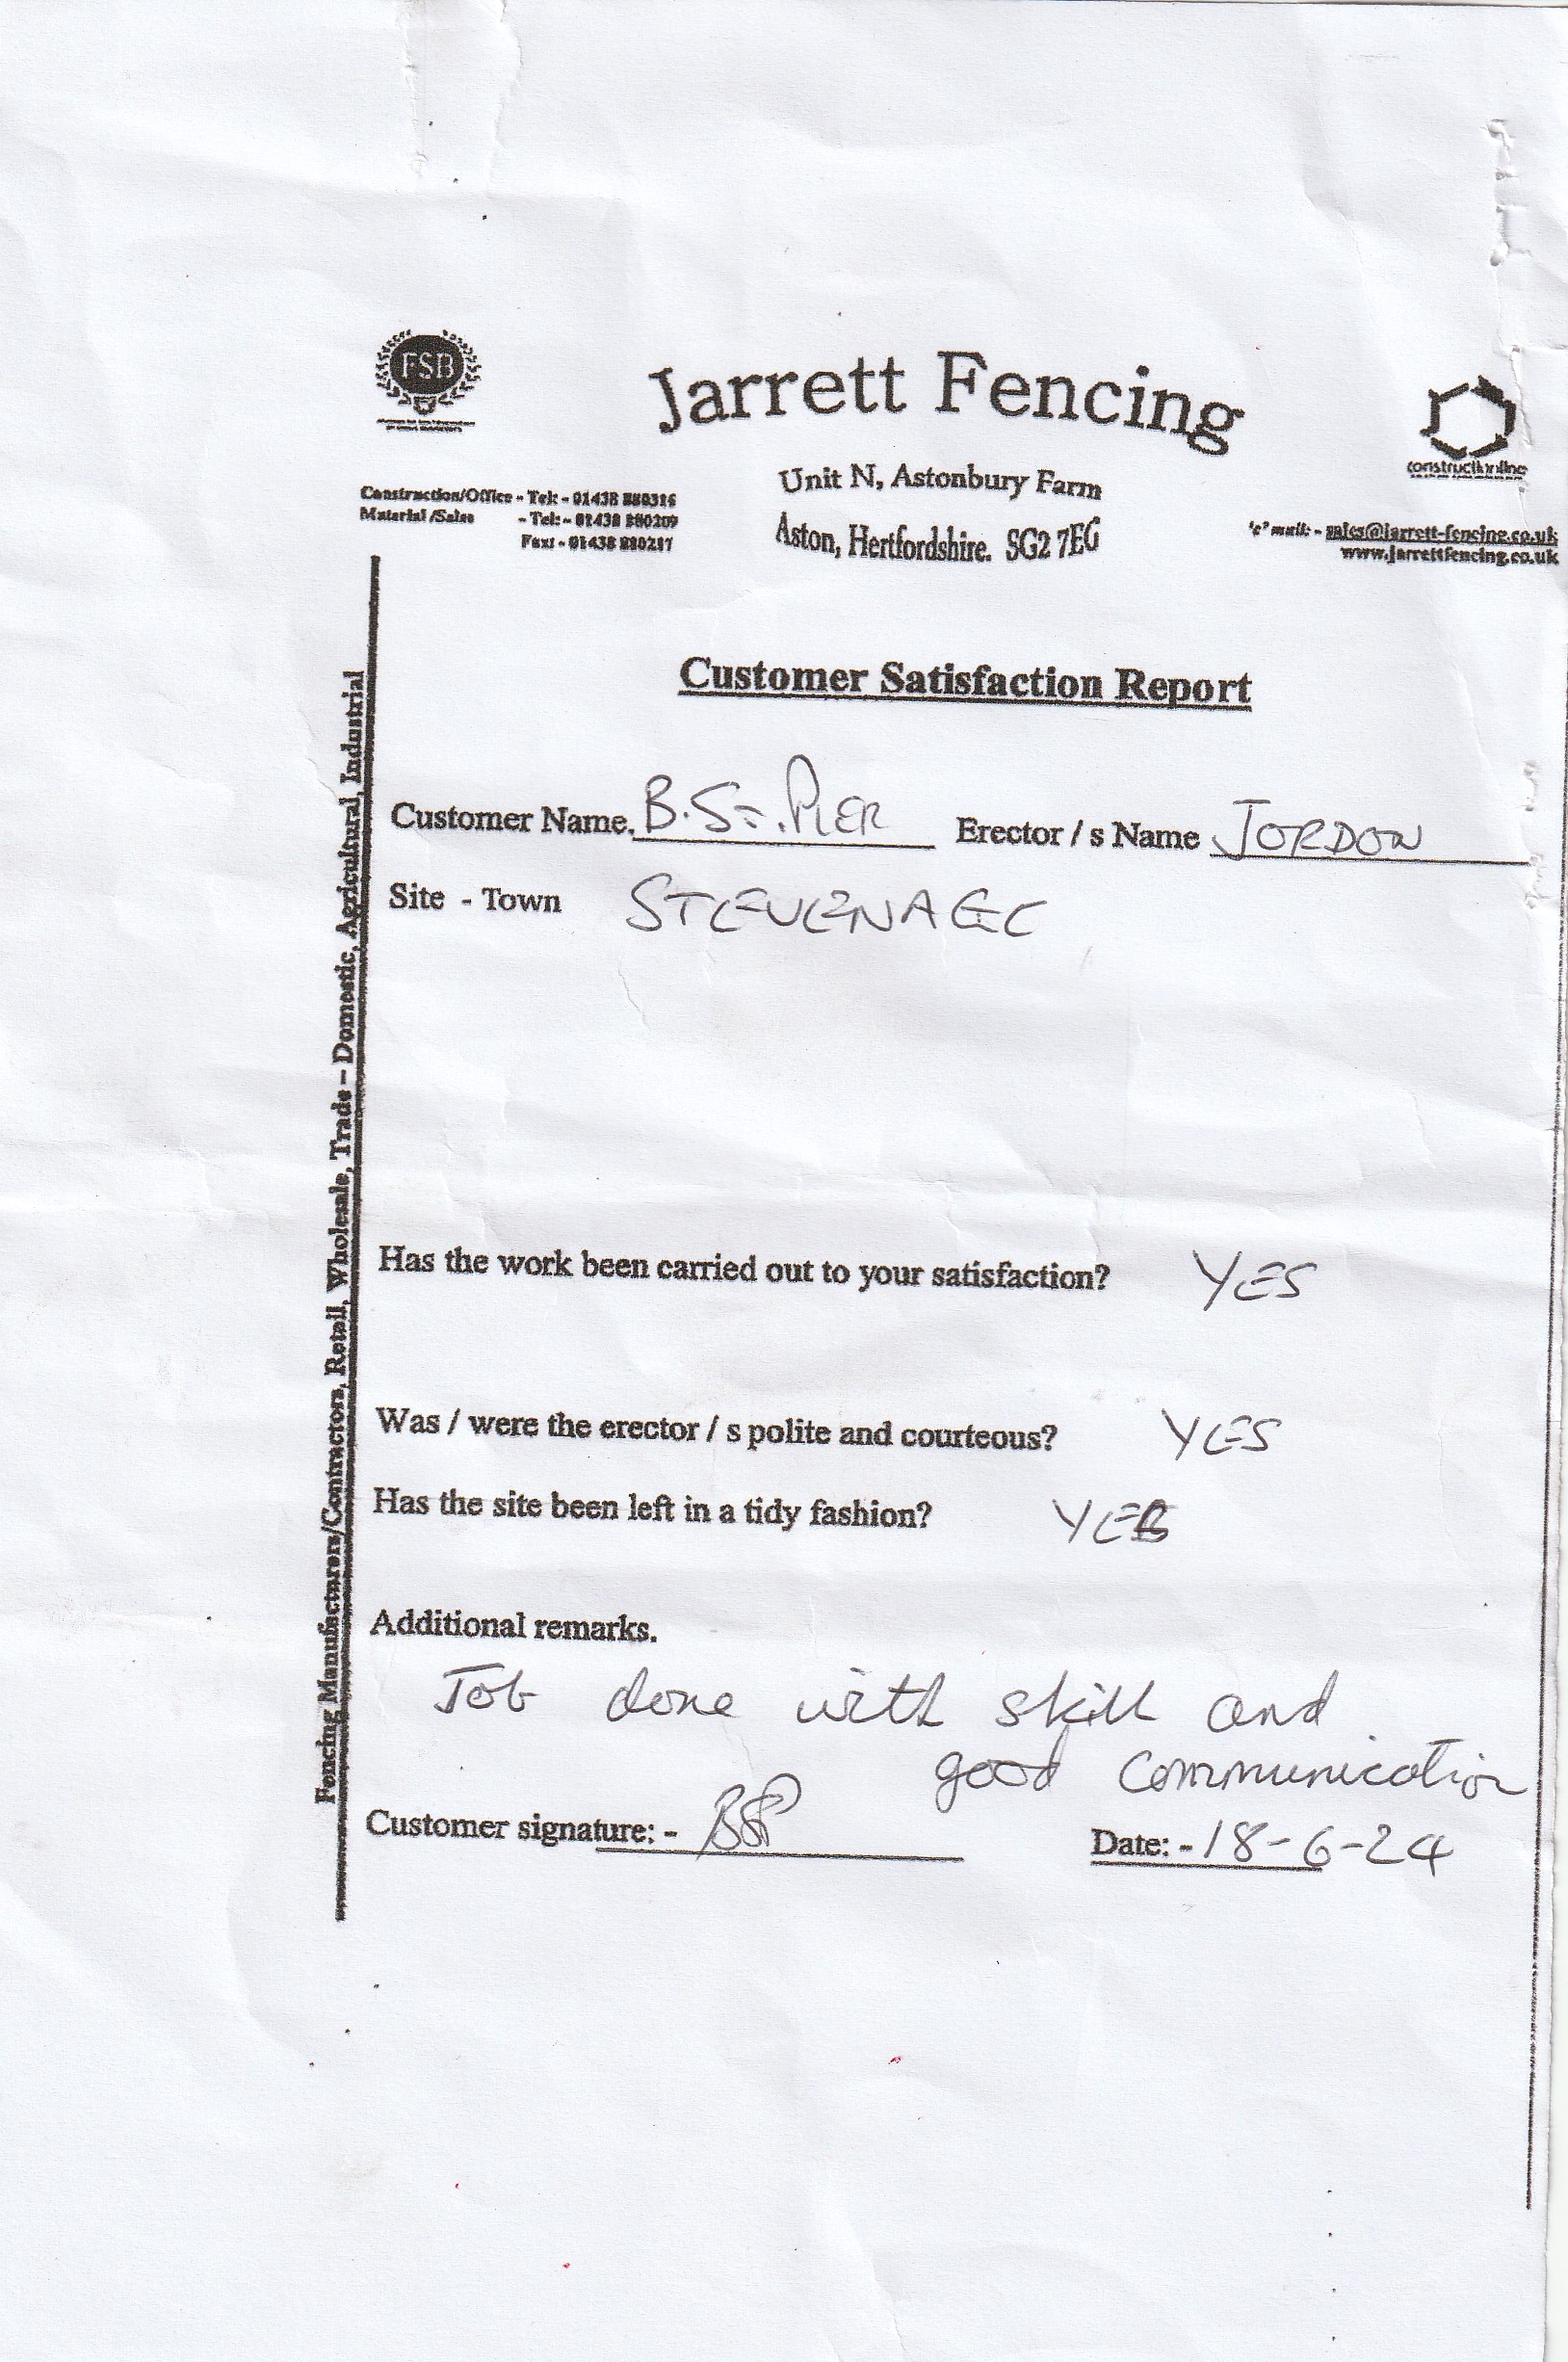 FSB
Jarrett Fencing
constructionline
Unit N, Astonbury Farm
Aston, Hertfordshire. SG2 7EG
Construction/Office - Tel: - 01438 880316
Material /Sales - Tel: - 01438 880209
Fax: - 01438 880217
'e' mail: - sales@jarrett-fencing.co.uk
www.jarrettfencing.co.uk
Fencing Manufacturers/Contractors, Retail, Wholesale, Trade – Domestic, Agricultural, Industrial
Customer Satisfaction Report
Customer Name. B. St. PIER Erector / s Name JORDON
Site - Town STEVENAGE
Has the work been carried out to your satisfaction? YES
Was / were the erector / s polite and courteous? YES
Has the site been left in a tidy fashion? YES
Additional remarks.
Job done with skill and
good communication
Customer signature: - BSP
Date: - 18-6-24